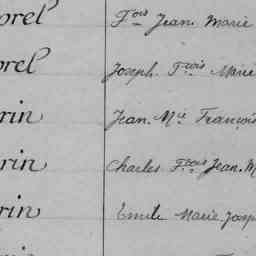 orel Fois Jean Marie
orel Joseph Frois Marie
rin Jean. Mie François
rin Charles Fcois Jean. M
rin Emile Marie Josep